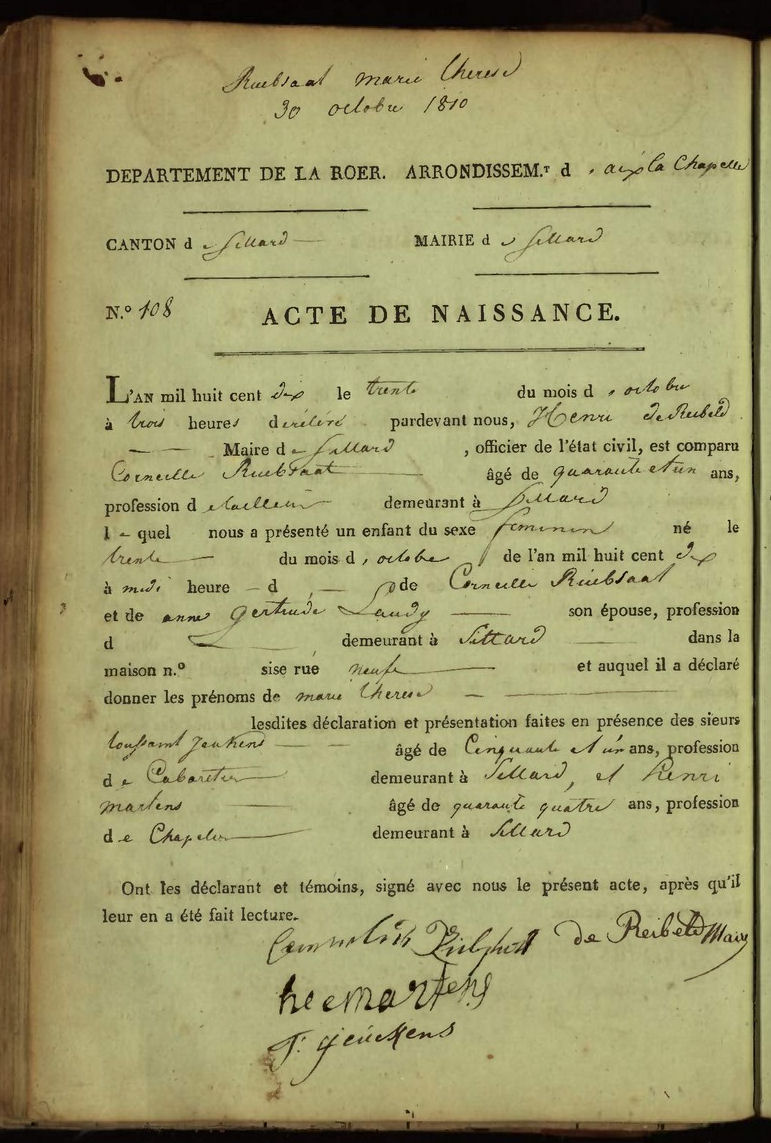 Ruebsaat marie therese
30 octobre 1810
DEPARTEMENT DE LA ROER. ARRONDISSEM.T d'aix la Chapelle
CANTON de Sittard MAIRIE de Sittard
N.o 108 ACTE DE NAISSANCE.
L'AN mil huit cent dix le trente du mois d'octobre
à trois heures de relévé pardevant nous, Henri de Reibeld
Maire de Sittard, officier de l'état civil, est comparu
Corneille Ruebsaat âgé de quarante et un ans,
profession de tailleur demeurant à Sittard
le quel nous a présenté un enfant du sexe feminin né le
trente du mois d'octobre de l'an mil huit cent dix
à midi heure d de Corneille Ruebsaat
et de anne Gertrude Laudy son épouse, profession
d demeurant à Sittard dans la
maison n.o sise rue neufe et auquel il a déclaré
donner les prénoms de marie therese
lesdites déclaration et présentation faites en présence des sieurs
toussaint Jeukens âgé de Cinquante et un ans, profession
de Cabaretier demeurant à Sittard, et henri
martens âgé de quarante quatre ans, profession
de Chapelier demeurant à Sittard
Ont les déclarant et témoins, signé avec nous le présent acte, après qu'il
leur en a été fait lecture.
de Reibeld Maire
martens
T. Jeuckens